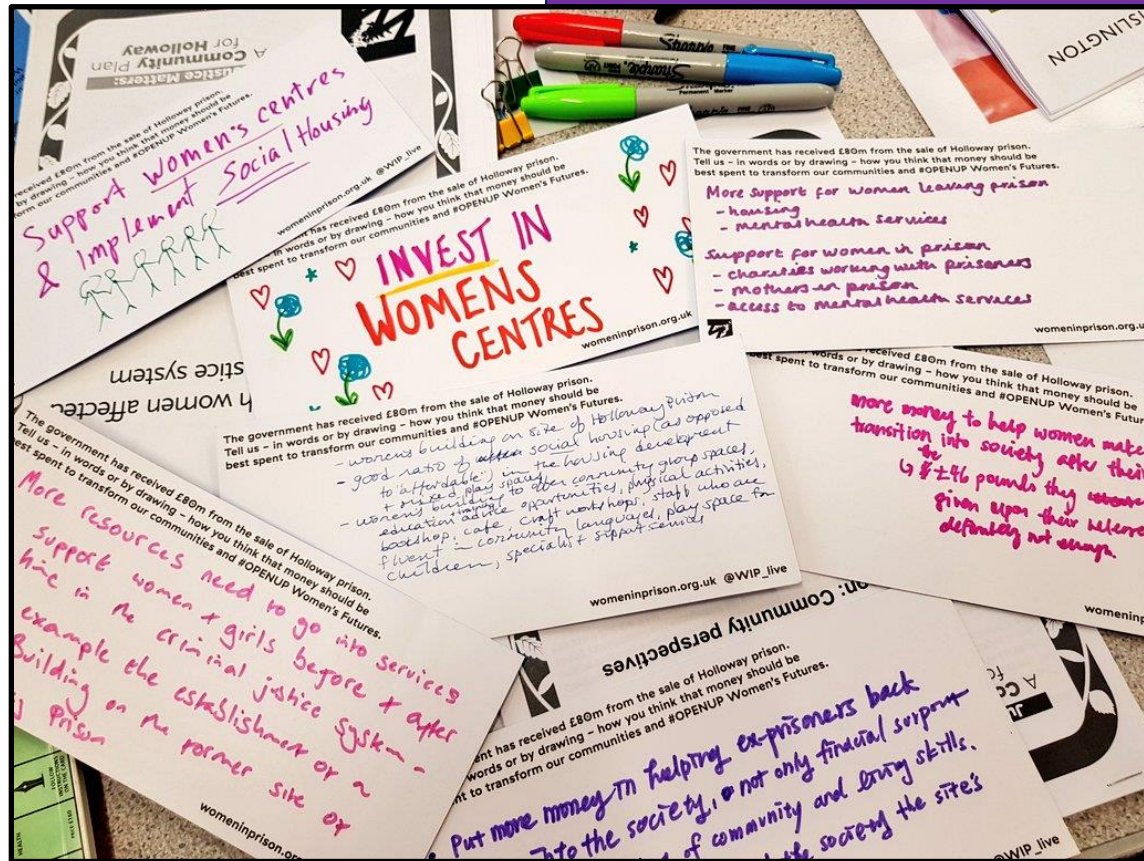 Justice Matters:
A Community Plan
for Holloway
received £80m from the sale of Holloway prison.
by drawing – how you think that money should be
form our communities and #OPENUP Women's Futures.
Support women's centres
& Implement Social Housing
womeninprison.org.uk @WIP_live
Sharpie
Sharpie
Permanent Marker
SLINGTON
has received £80m from the sale of Holloway prison.
in words or by drawing – how you think that money should be
best spent to transform our communities and #OPENUP Women's Futures.
INVEST IN
WOMENS
CENTRES
womeninprison.org.uk
The government has received £80m from the sale of Holloway prison.
Tell us – in words or by drawing – how you think that money should be
best spent to transform our communities and #OPENUP Women's Futures.
More support for women leaving prison
- housing
- mental health services
Support for women in prison
- charities working with prisoners
- mothers in prison
- access to mental health services
womeninprison.org.u
stice system
h women affected
The government has received £80m from the sale of Holloway prison.
Tell us – in words or by drawing – how you think that money should be
best spent to transform our communities and #OPENUP Women's Futures.
- womens building on site of Holloway Prison
- good ratio of social housing (as opposed
to 'affordable') in the housing development
+ mixed play spaces
- womens building to offer community group spaces,
education advice training opportunities, physical activities,
bookshop, cafe, craft workshops, staff who are
fluent in community languages, play space for
children, specialist support services
womeninprison.org.uk @WIP_live
received £80m from the sale of Holloway prison.
words or by drawing – how you think that money should be
best spent to transform our communities and #OPENUP Women's Futu
more money to help women make
transition into society after their
↳ the £46 pounds they
given upon their release
definitely not enough.
womeninp
The government has received £80m from the sale of Holloway prison.
Tell us – in words or by drawing – how you think that money should be
best spent to transform our communities and #OPENUP Women's Futures.
More resources need to go into services
support women + girls before + after
time in the criminal justice system -
example the establishment of a
Building on the former site of
prison
womeninprison.or
on: Community perspectives
ent has received £80m from the sale of Holloway prison.
words or by drawing – how you think that money should be
nt to transform our communities and #OPENUP Women's Futures.
Put more money in helping ex-prisoners back
into the society, not only finacial surport
of community and living skills.
the society the site's
@WIP_live
A
Co
fo
FOLLOW
INSTRUCTIONS
ON THE CARD
HEALTH
PRICE £160